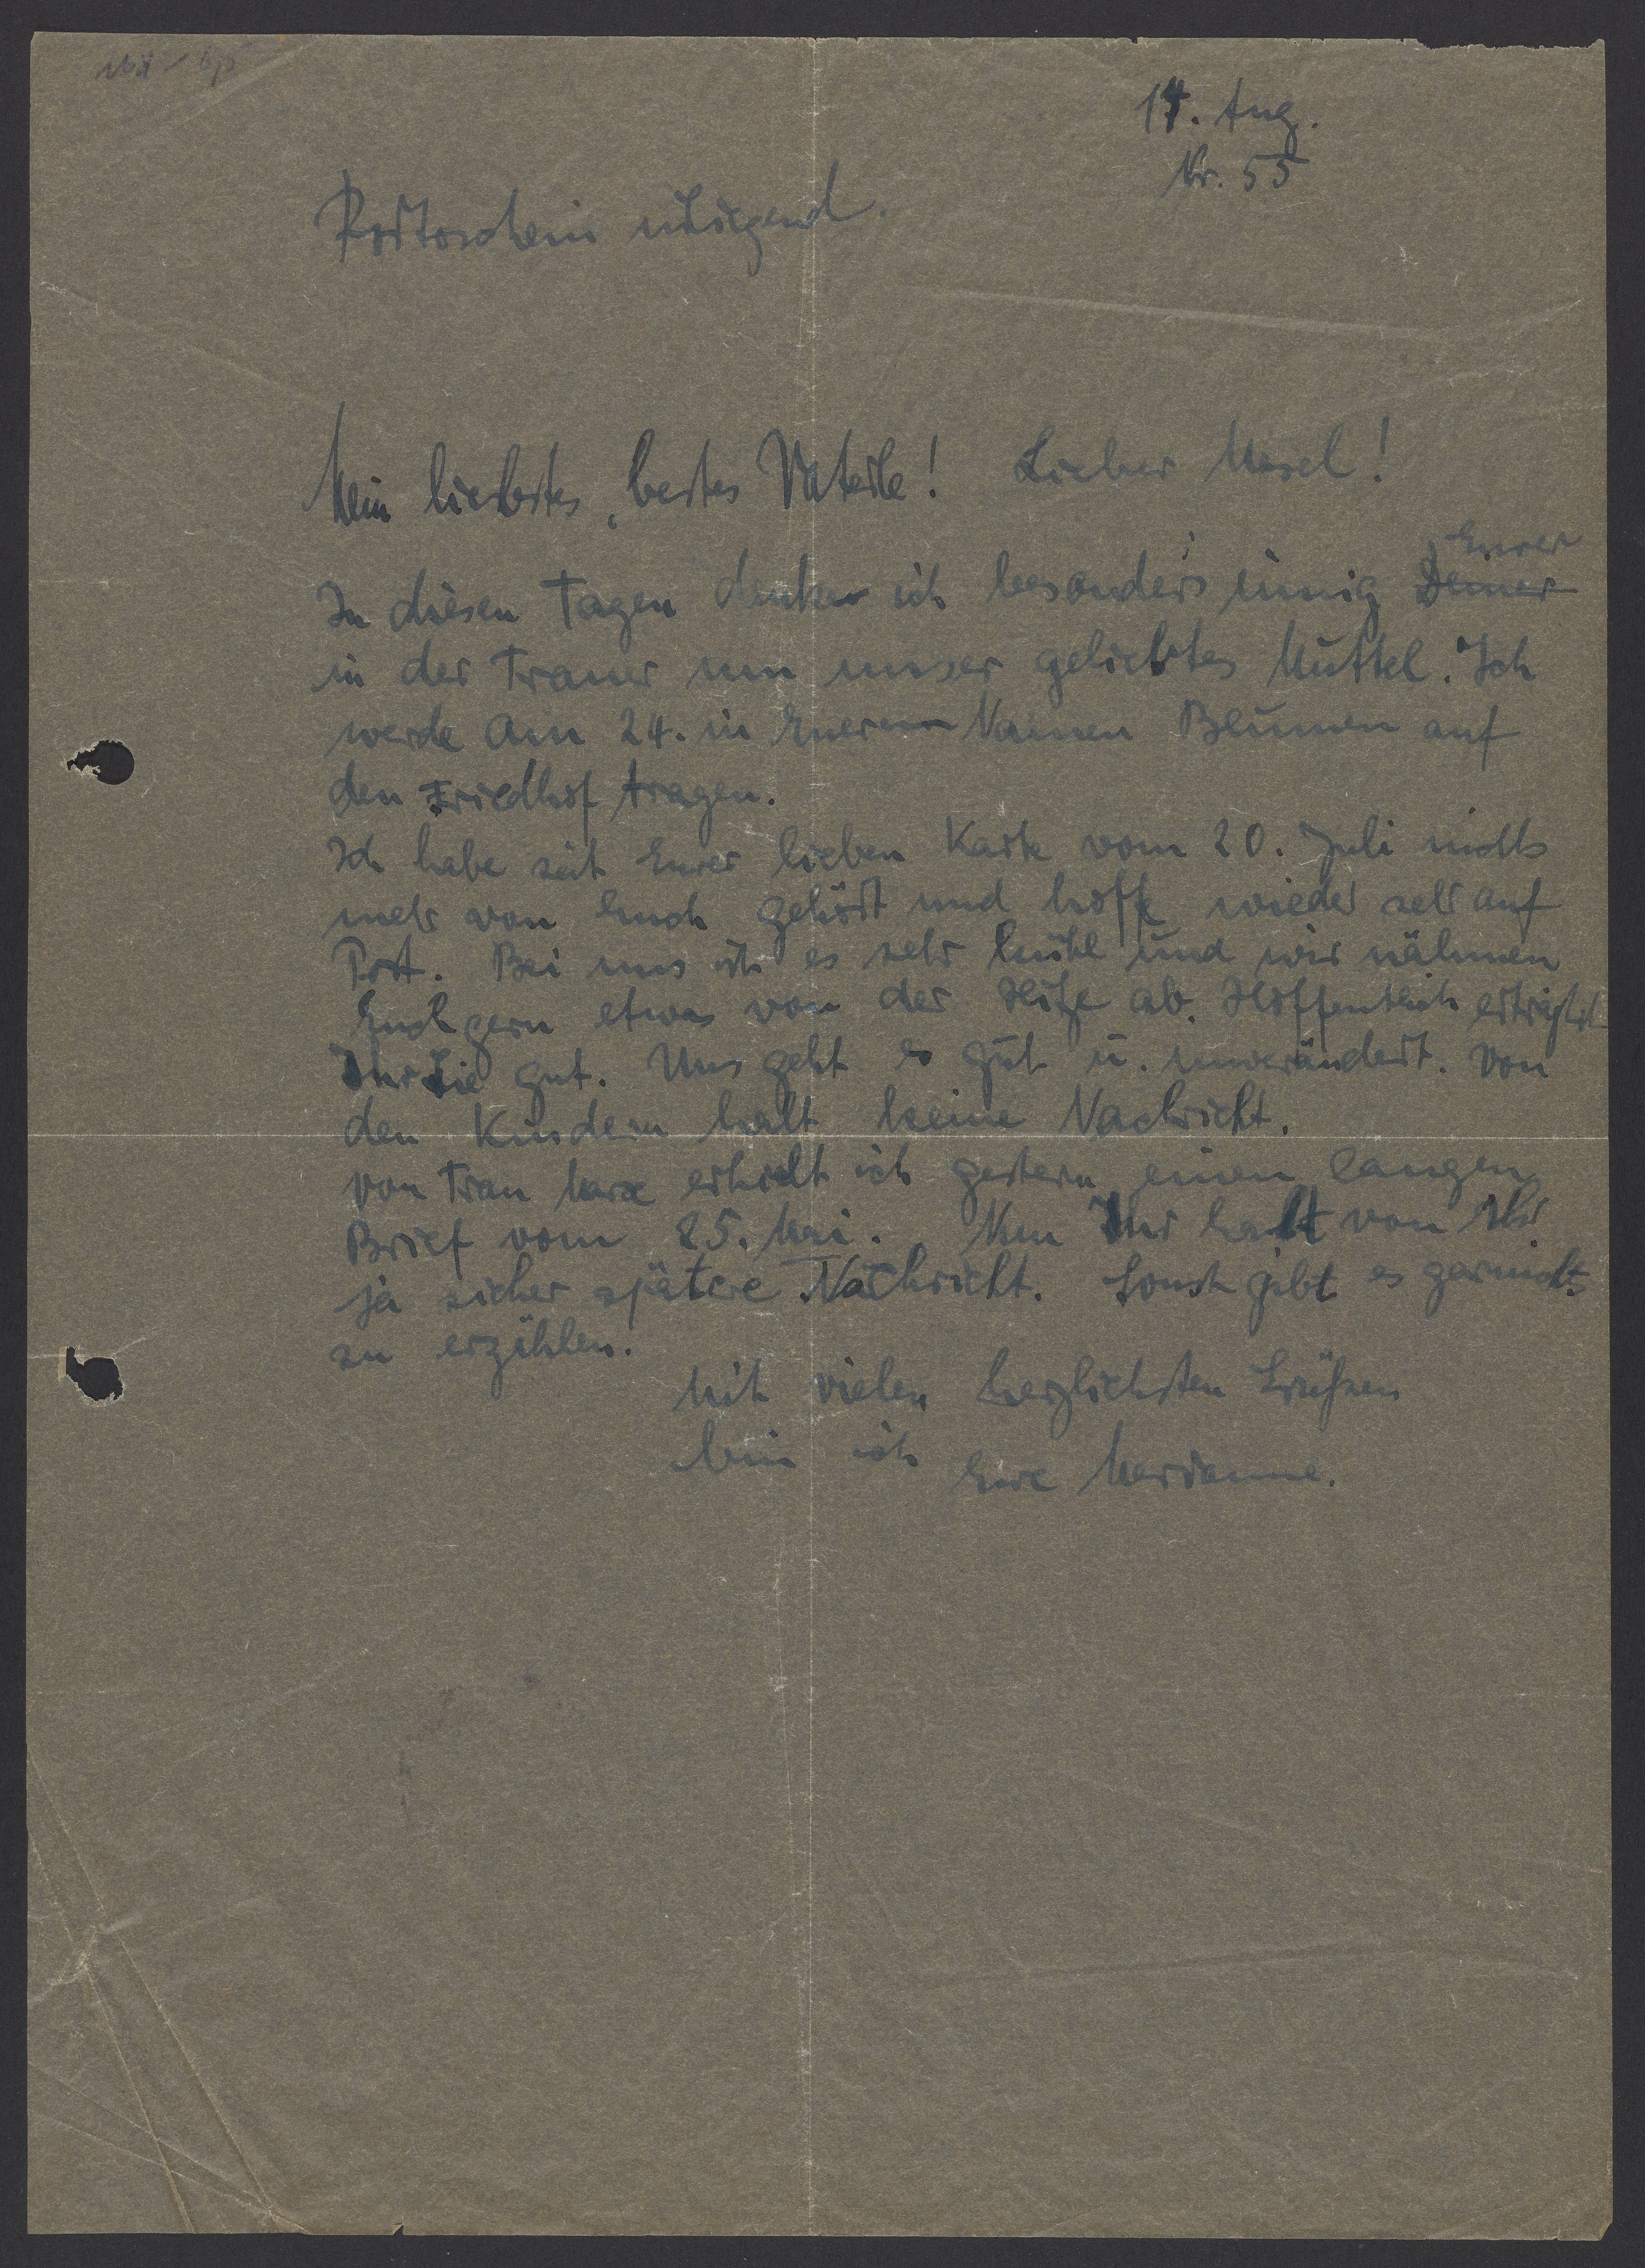 14. Aug.
Nr. 55
Mein liebstes, bestes Vaterle! Lieber Mosel!
Eurer
In diesen Tagen denke ich besonders innig Deiner
in der Trauer um unser geliebtes Muttel. Ich
werde am 24. in Euerem Namen Blumen auf
den Friedhof tragen.
Ich habe seit Eurer lieben Karte vom 20. Juli nichts
mehr von Euch gehört und hoffe wieder sehr auf
Post. Bei uns ist es sehr kühl und wir nähmen
Euch gern etwas von der Hitze ab. Hoffentlich ertragt
Ihr sie gut. Uns geht es gut u. unverändert. Von
den Kindern halt keine Nachricht.
Von Frau Marx erhielt ich gestern einen langen
Brief vom 25. Mai. Nun Ihr habt von Ihr
ja sicher spätere Nachricht. Sonst gibt es garnichts
zu erzählen.
Mit vielen herzlichsten Grüßen
bin ich Eure Marianne.